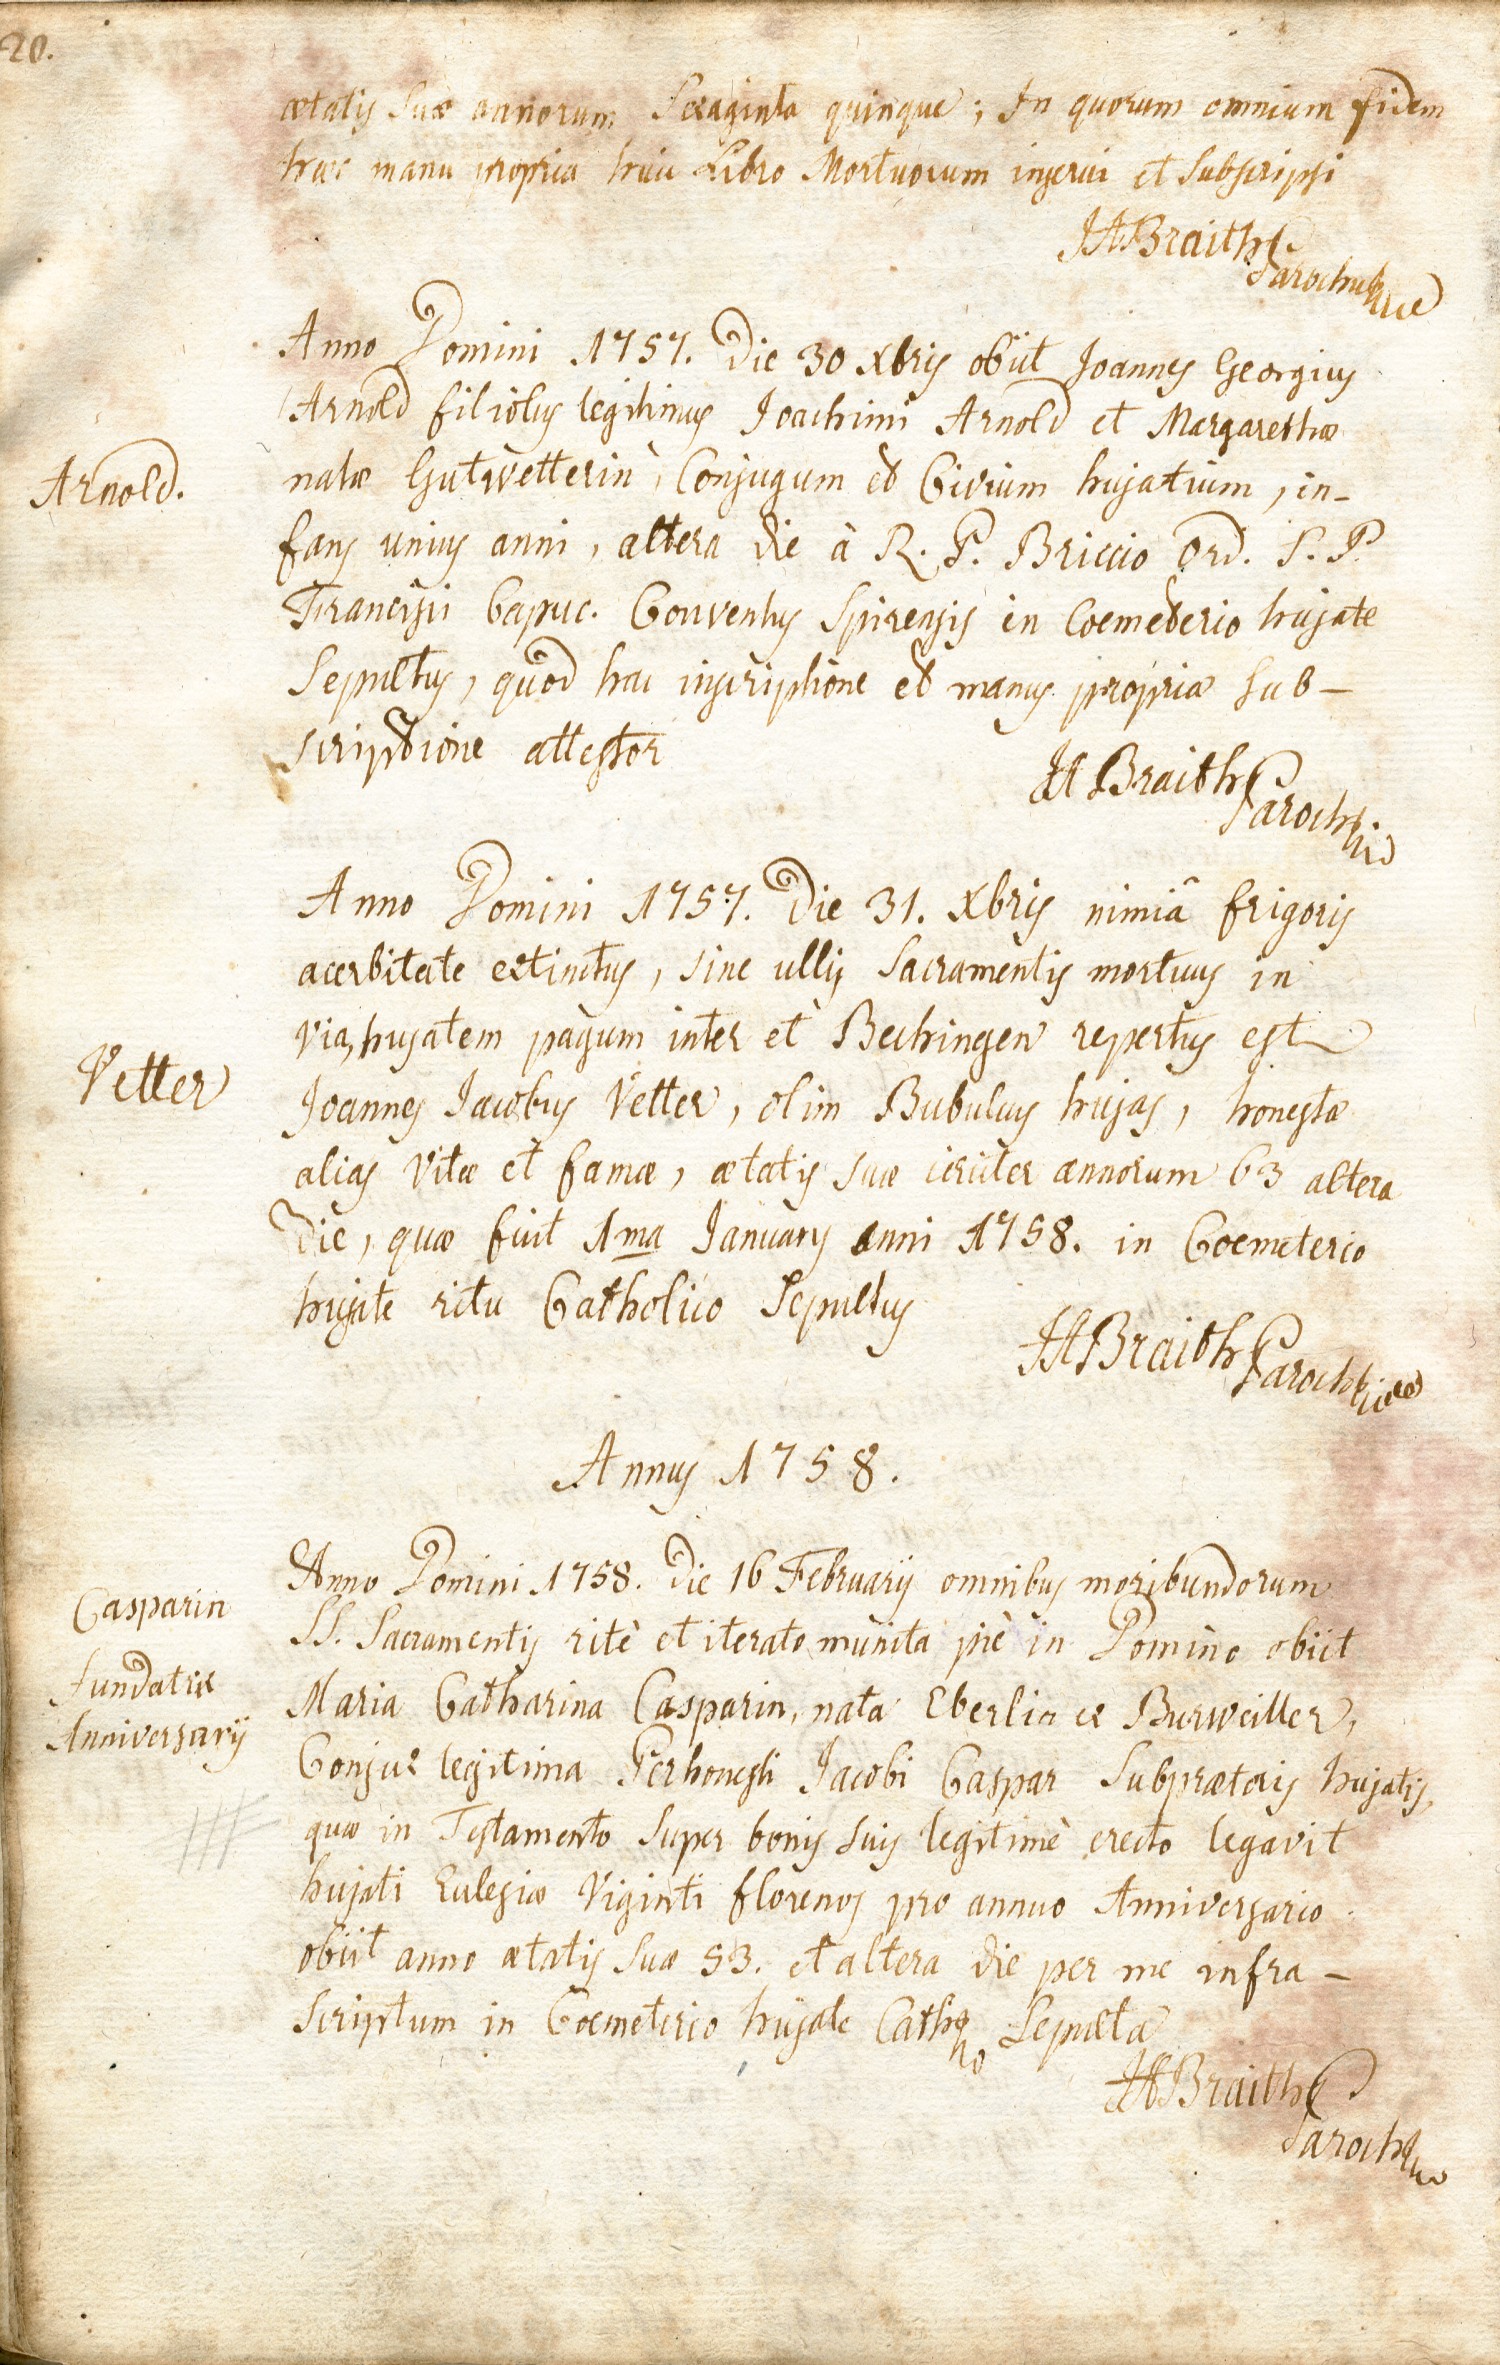 20.
ætatis suæ annorum Sexaginta quinque; In quorum omnium fidem
hæc manu propria huic Libro Mortuorum inserui et subscripsi
JABraith
Parochus
Anno Domini 1757. Die 30 Xbris obiit Joannes Georgius
Arnold filiolus legitimus Joachimi Arnold et Margarethæ
Arnold.
natæ Gutvetterin, Conjugum et Civium hujatium, in-
fans unius anni, altera die à R. P. Briccio Ord. S. P.
Francisci Capuc. Conventus Spirensis in Coemeterio hujate
Sepultus, quod hac inscriptione et manus propriæ sub-
scriptione attestor
JABraith
Paroch
Anno Domini 1757. Die 31. Xbris nimiâ frigoris
acerbitate extinctus, sine ullis Sacramentis mortuus in
via, hujatem pagum inter et Bechingen repertus est
Vetter
Joannes Jacobus Vetter, olim Bubulcus hujas, honestæ
alias vitæ et famæ, ætatis suæ circiter annorum 63 altera
die, quæ fuit 1ma Januarij anni 1758. in Coemeterio
hujate ritu Catholico Sepultus
JABraith
Paroch
Annus 1758.
Anno Domini 1758. Die 16 Februarij omnibus moribundorum
Casparin
SS. Sacramentis ritè et iterato munita piè in Domino obiit
Fundatrix
Maria Catharina Casparin, nata Eberlin ex Burweiller,
Anniversarij
Conjux legitima Perhonesti Jacobi Caspar Subprætoris hujatis,
quæ in Testamento super bonis suis legitimè erecto legavit
hujati Eclesiæ Viginti florenos pro annuo Anniversario
obiit anno ætatis suæ 53. et altera die per me infra-
scriptum in Coemeterio hujate Cathco Sepulta
JABraith
Paroch